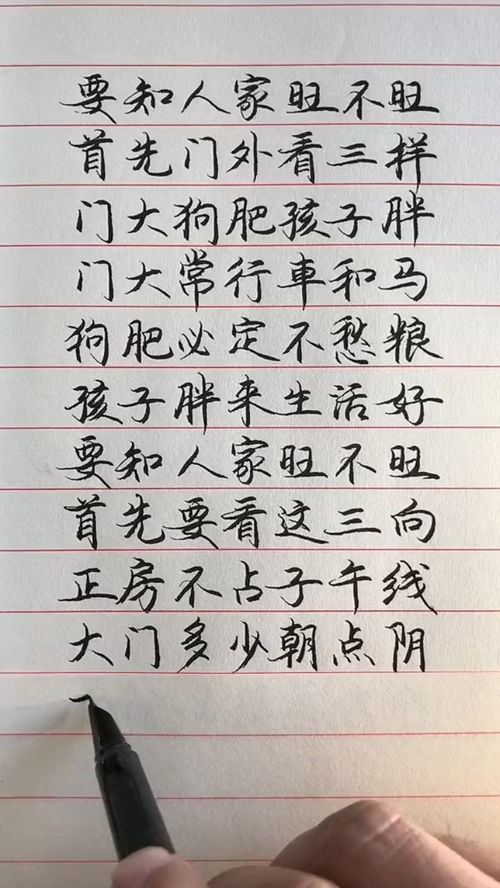 要知人家旺不旺
首先门外看三样
门大狗肥孩子胖
门大常行車和马
狗肥必定不愁粮
孩子胖来生活好
要知人家旺不旺
首先要看这三向
正房不占子午线
大门多少朝点阴